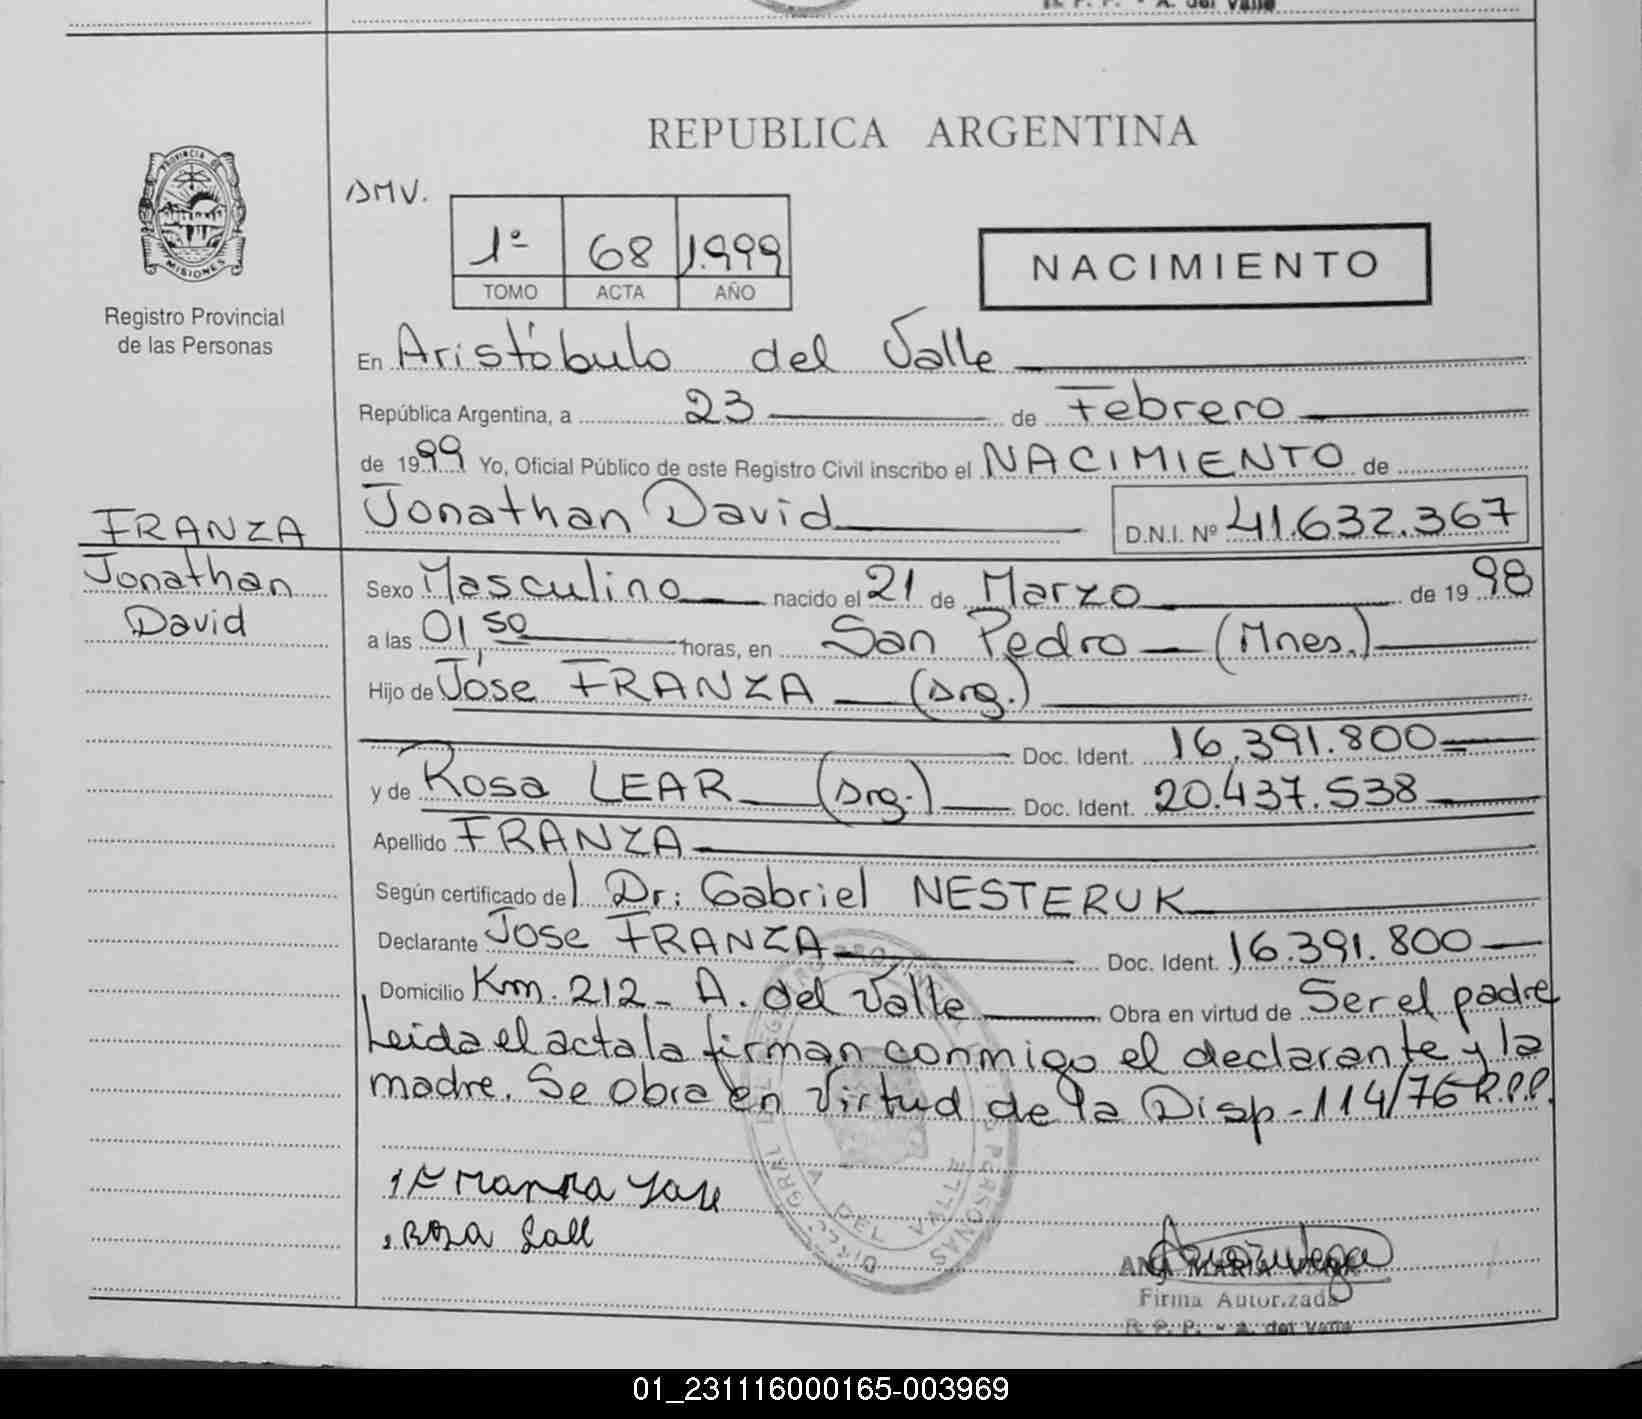 R. P. P. - A. del Valle
REPUBLICA ARGENTINA
PROVINCIA DE
MISIONES
Registro Provincial
de las Personas
DMV.
1º 68 1.999
TOMO ACTA AÑO
NACIMIENTO
En Aristóbulo del Valle
República Argentina, a 23 de Febrero
de 1999 Yo, Oficial Público de este Registro Civil inscribo el NACIMIENTO de
Jonathan David D.N.I. Nº 41.632.367
FRANZA
Jonathan
David
Sexo Masculino nacido el 21 de Marzo de 1998
a las 01,50 horas, en San Pedro (Mnes.)
Hijo de José FRANZA (Arg.)
Doc. Ident. 16.391.800=
y de Rosa LEAR (Arg.) Doc. Ident. 20.437.538
Apellido FRANZA
Según certificado del Dr: Gabriel NESTERUK
Declarante José FRANZA Doc. Ident. 16.391.800
Domicilio Km. 212 - A. del Valle Obra en virtud de Ser el padre
Leida el acta la firman conmigo el declarante y la
madre. Se obra en Virtud de la Disp - 114/76 R.P.P.
ANA MARIA
Firma Autorizada
R. P. P. - A. del Valle
01_231116000165-003969